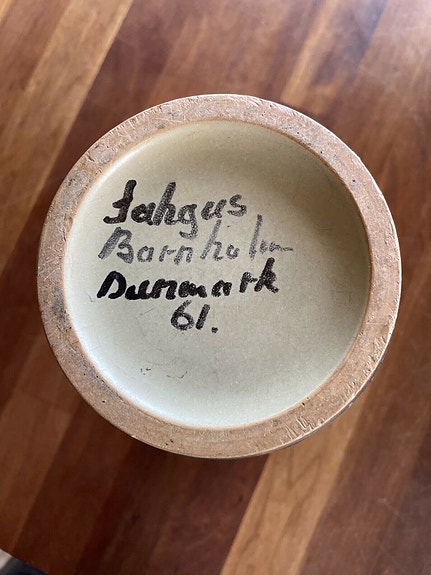 Jahgus
Bornholm
Dunmark
61.